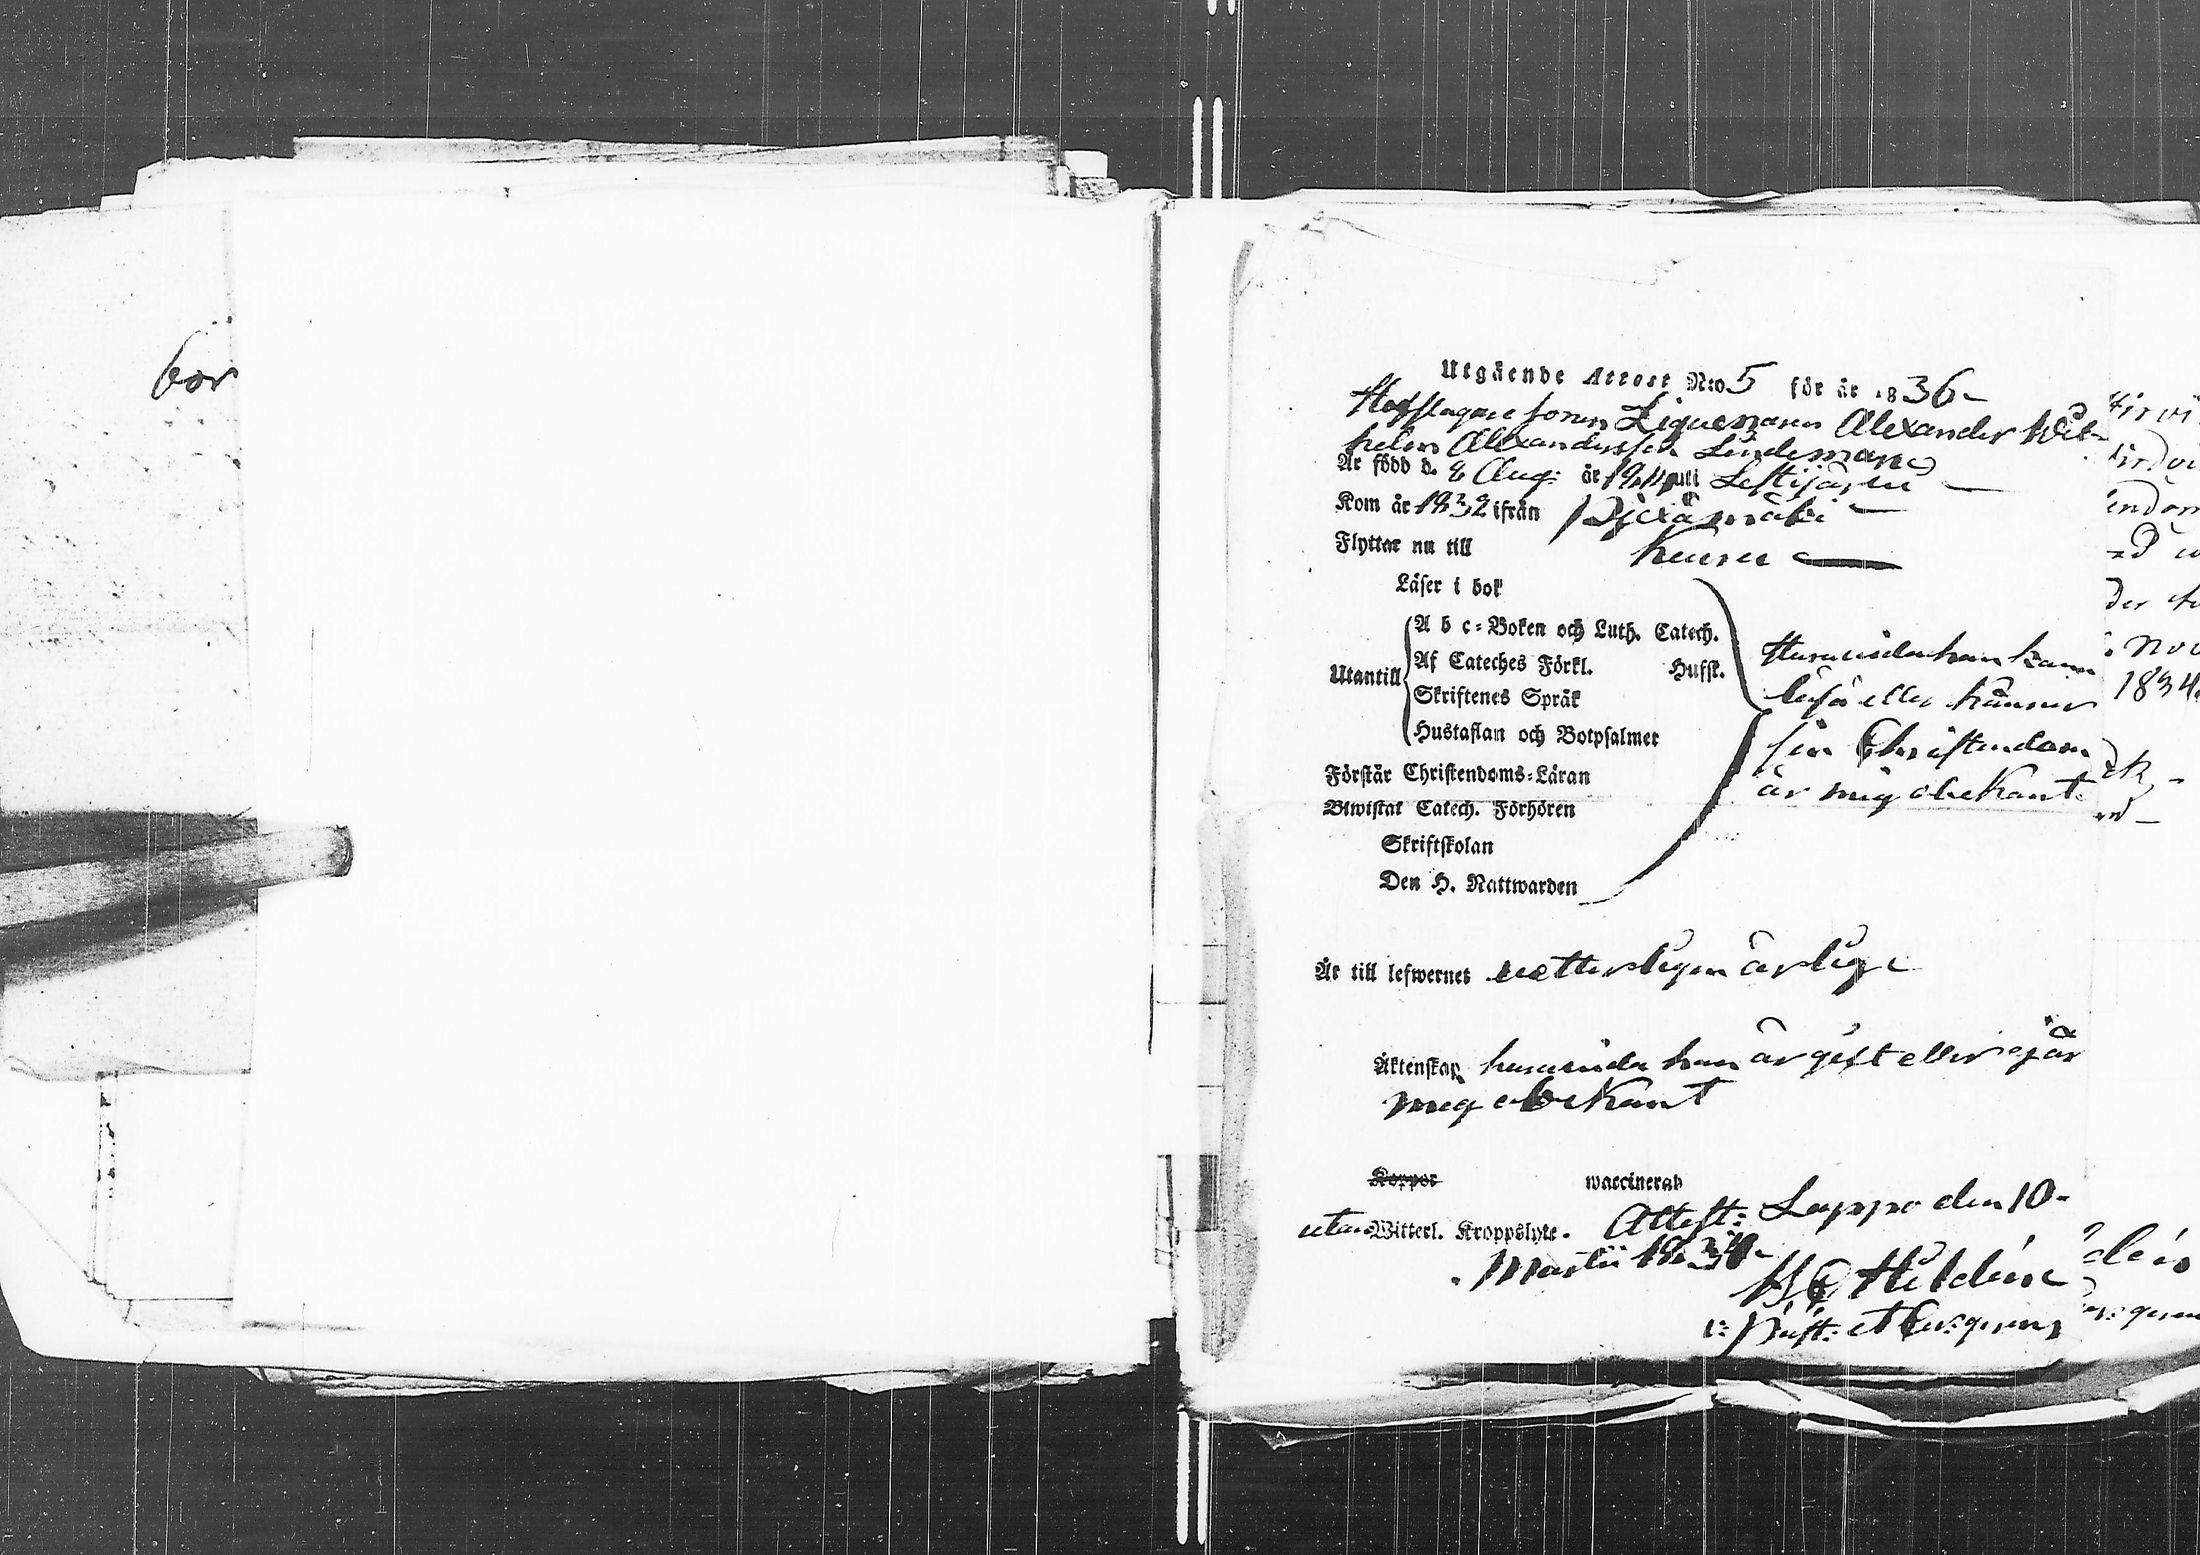 bor
Utgående Attest N:o 5 för år 1836 –
Hofslagare sonen Ligueuaren Alexander Wil-
helm Alexandersson Lindeman
Är född d. 8 Aug: år 1811 uti Lestijärvi –
Kom år 1832 ifrån Pjexämäki –
Flyttar nu till Keuru –
Läser i bok
Utantill
A b c-Boken och Luth. Catech.
Af Cateches Förkl. Husft.
Skriftenes Språk
Hustaflan och Botpsalmer
Förstår Christendoms-Läran
Biwistat Catech. Förhören
Skriftskolan
Den H. Nattwarden
Huruvida han kan
läsa eller känner
sin Christendom
är mig obekant.
Är till lefwernet vetterligen ärlig
Äktenskap huruvida han är gift eller ej är
mig obekant
Koppor waccinerad
utan Witterl. Kroppslyte. Attest: Lappo den 10-
Martii 1836
Hildén
v: Past: et
1834